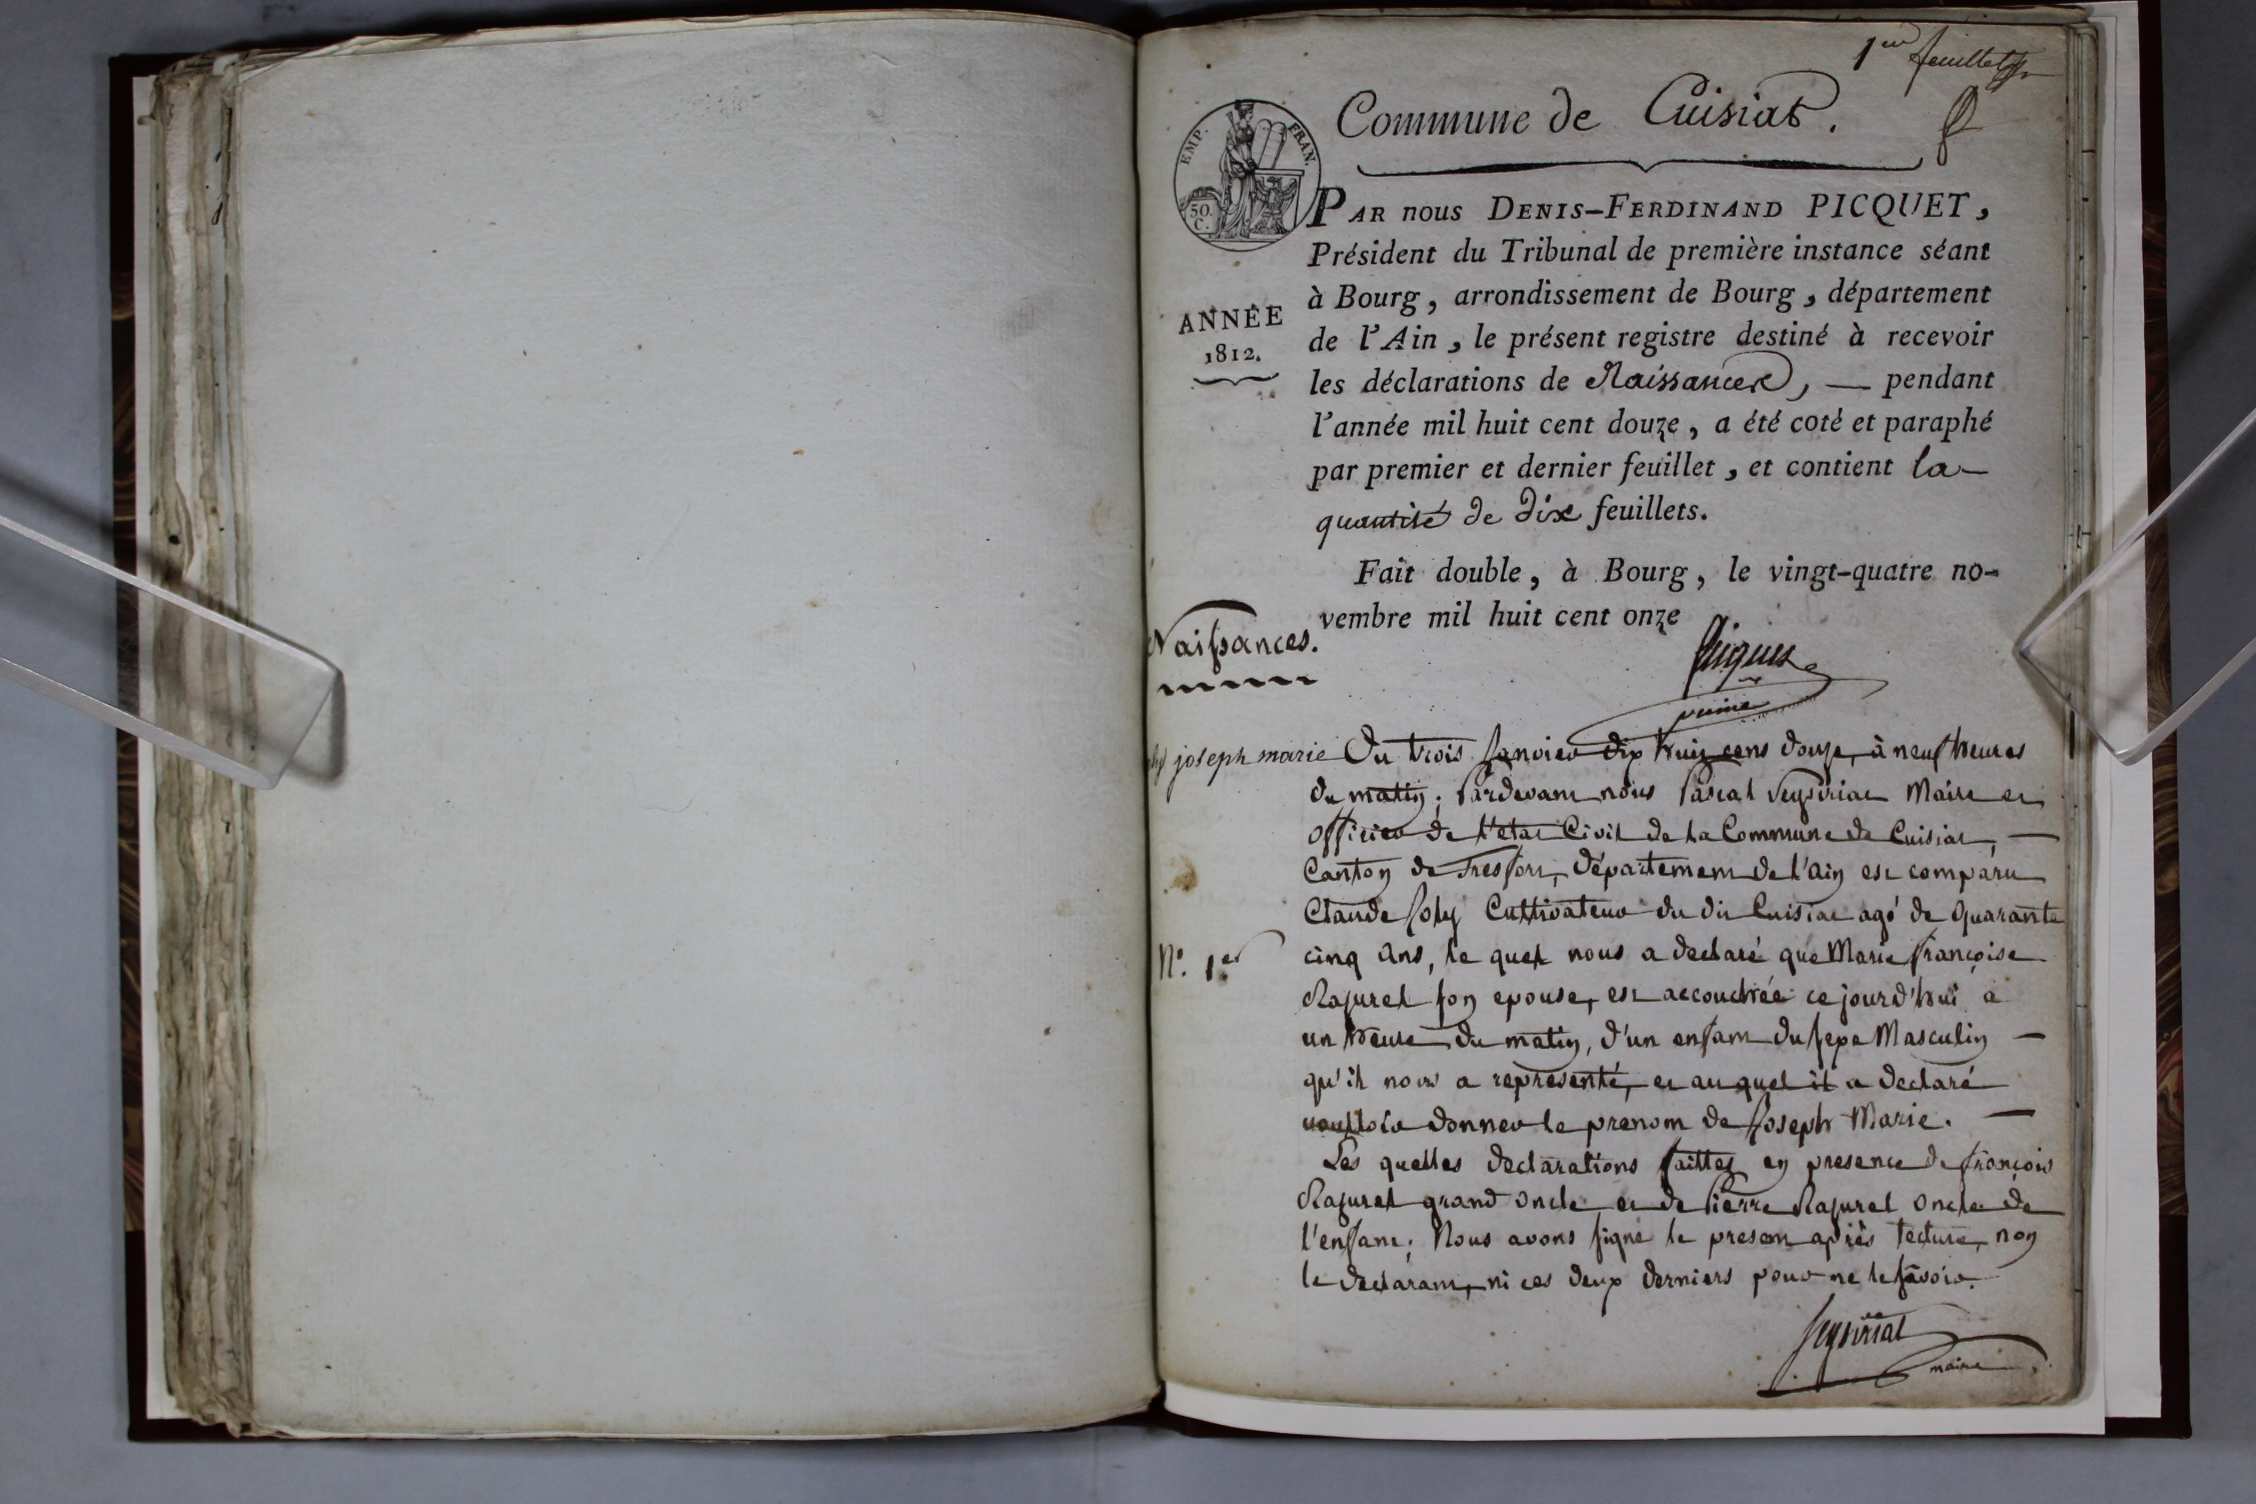 1er feuillet
Commune de Cuisiat.
EMP. FRAN.
50. C.
PAR nous DENIS-FERDINAND PICQUET,
Président du Tribunal de première instance séant
à Bourg, arrondissement de Bourg, département
ANNÉE
1812.
de l'Ain, le présent registre destiné à recevoir
les déclarations de Naissances, — pendant
l'année mil huit cent douze, a été coté et paraphé
par premier et dernier feuillet, et contient la
quantité de dix feuillets.
Fait double, à Bourg, le vingt-quatre no-
vembre mil huit cent onze
Naissances.
Picquet
joseph marie
Du trois Janvier dix huit cens douze, à neuf heures
du matin; Pardevant nous Pascal Seyvériat Maire et
officier de l'etat Civil de la Commune de Cuisiat, —
Canton de Treffort, département de l'ain est comparu
Claude Joly Cultivateur du dit Cuisiat agé de quarante
N°. 1er
cinq ans, le quel nous a declaré que Marie françoise
Razurel son epouse, est accouchée ce jourd'hui à
un heure du matin, d'un enfant du sexe Masculin —
qu'il nous a representé, et au quel il a declaré
voulloir donner le prenom de Joseph Marie. —
Les quelles declarations faittes en presence de françois
Razurel grand oncle et de Pierre Razurel oncle de
l'enfant; Nous avons signé le present après lecture, non
le declarant, ni ces deux derniers pour ne le savoir.
Seyvériat
maire